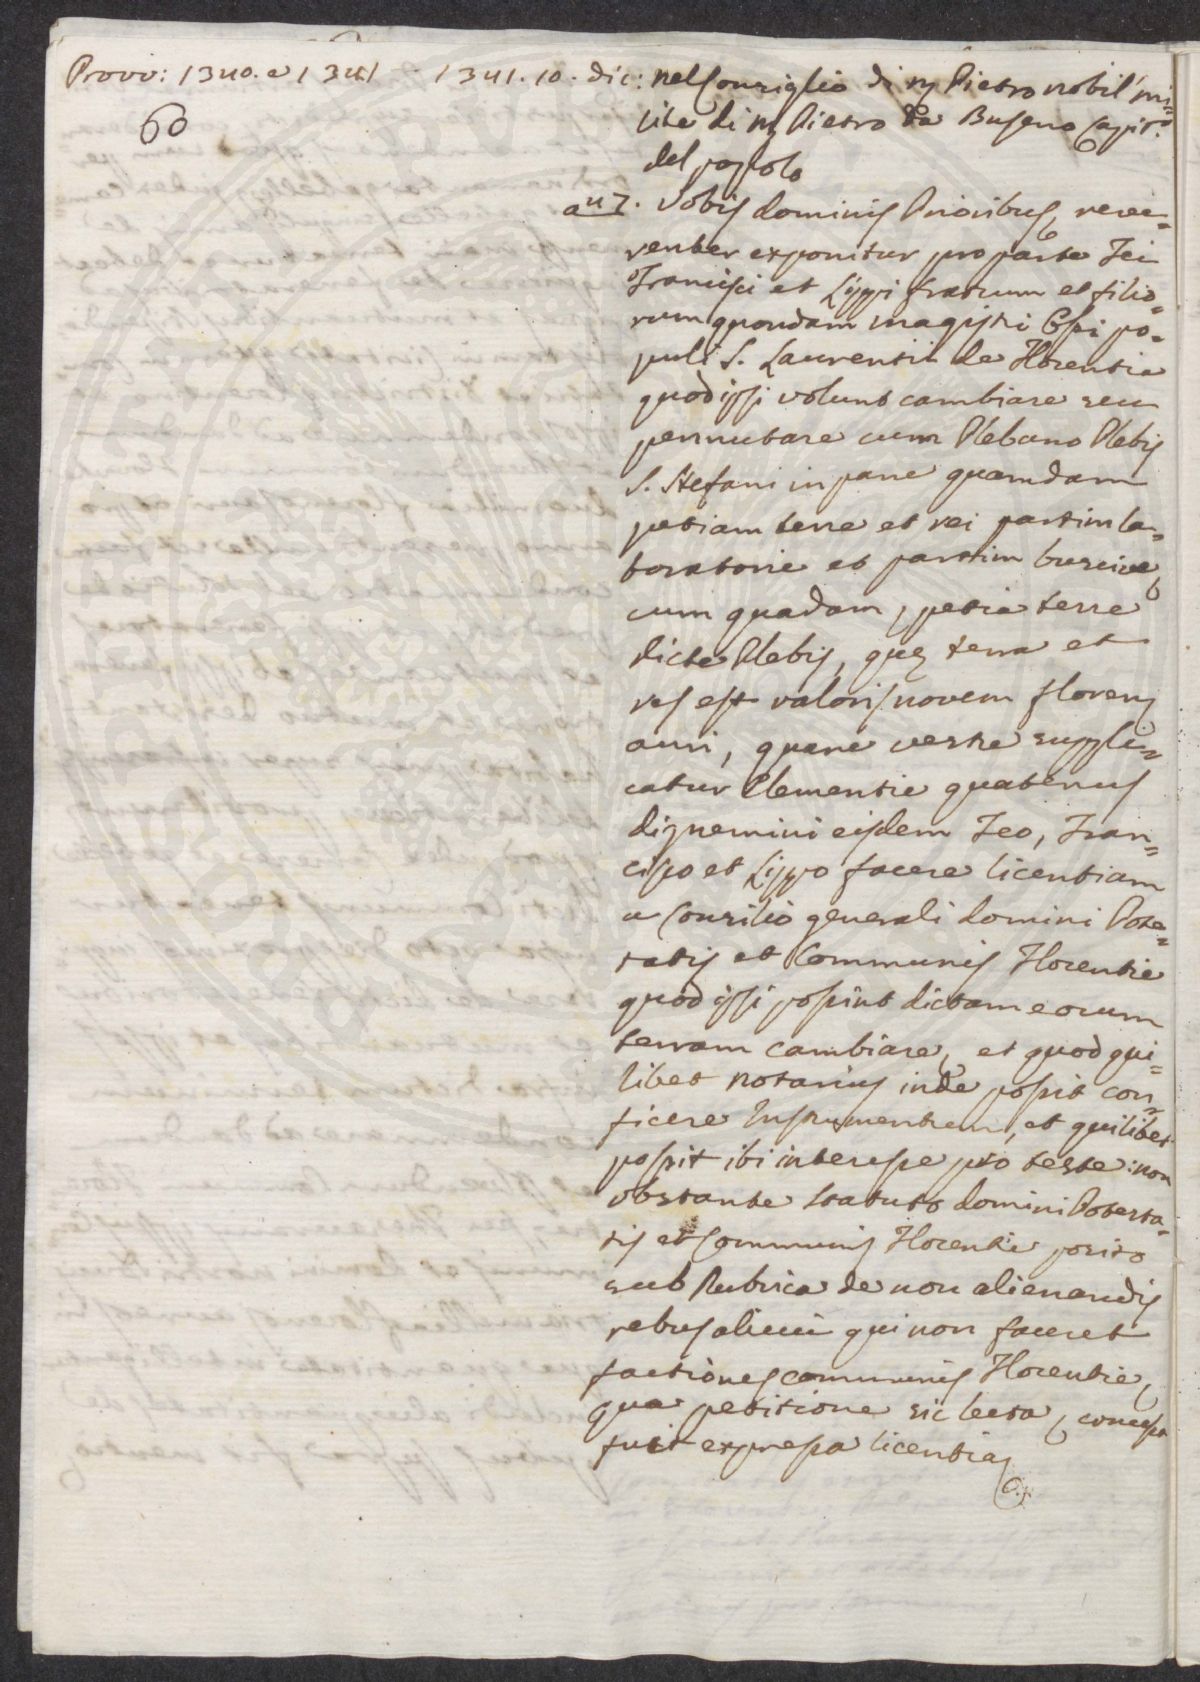 Provv: 1340. e 1341 - 1341. 10. dic: nel Consiglio di m Pietro nobil' mi=
60
lite di m Pietro da Buseno Capit.
del popolo
a 47. Vobis dominis Prioribus, reve=
renter exponitur pro parte Tei
Francisci et Lippi fratrum et filio=
rum quondam magistri po=
puli S. Laurentii de Florentia
quod ipsi volunt cambiare seu
permutare cum Plebano Plebis
S. Stefani in pane quamdam
petiam terre et rei partim la=
boratorie et partim
cum quadam, petia terre
dicte Plebis, que terra et
res est valoris novem floren
auri, quare vestre suppli=
catur Clementie quatenus
dignemini eisdem Teo, Fran=
cisco et Lippo facere licentiam
a Consilio generali domini Pote=
statis et Communis Florentie
quod ipsi possint dictam eorum
terram cambiare, et quod qui=
libet notarius inde possit con=
ficere Instrumentum, et quilibet
possit ibi interesse pro teste: non
obstante statuto domini Potesta=
tis et Communis Florentie posito
sub Rubrica de non alienandis
rebus alicui qui non faceret
factiones communis Florentie,
qua petitione sic lecta, concessa
fuit expressa licentia